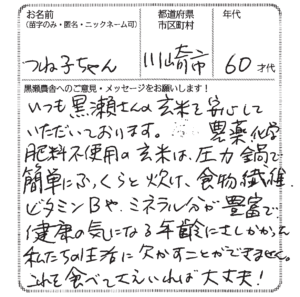 お名前
(苗字のみ・匿名・ニックネーム可)
都道府県
市区町村
年代
つね子ちゃん
川崎市
60才代
黒瀬農舎へのご意見・メッセージをお願いします!
いつも黒瀬さんの玄米を安心して
いただいております。 農薬化学
肥料不使用の玄米は、圧力鍋で
簡単にふっくらと炊け、食物繊維、
ビタミンBや、ミネラル分が豊富で
健康の気になる年齢にさしかかった
私たちの生活に欠かすことができません。
これを食べてさえいれば大丈夫!